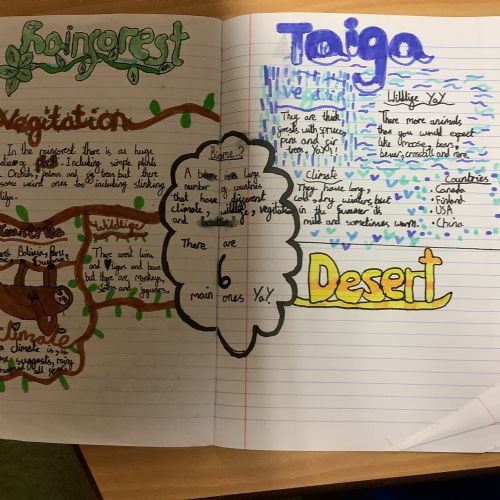 Rainforest
Vegitation
In the rainforest there is an huge
of plants. Including simple plants
Orchids, palms and fig trees but there
some weird ones too including stinking
Countries
Bolivia, Peru,
Wildlige
There arent lions,
and tigers and bears
but there are, monkeys,
sloths and jaguars.
Climate
climate is, as
suggests, rainy
all year!
Biome..?
A biome is a large
number of countries
that have different
climate, wildlige, vegitation
and
There are
6
main ones YaY!
Taiga
They are thick
forests with spruce,
pine and fir
trees, YaY!
Wildlige YaY
There more animals
than you would expect
like Moose, bear,
beaver, crossbill and more.
Climate
They have long,
cold, dry winters but
in the summer its
mild and sometimes warm.
Countries
• Canada
• Finland
• USA
• China
Desert